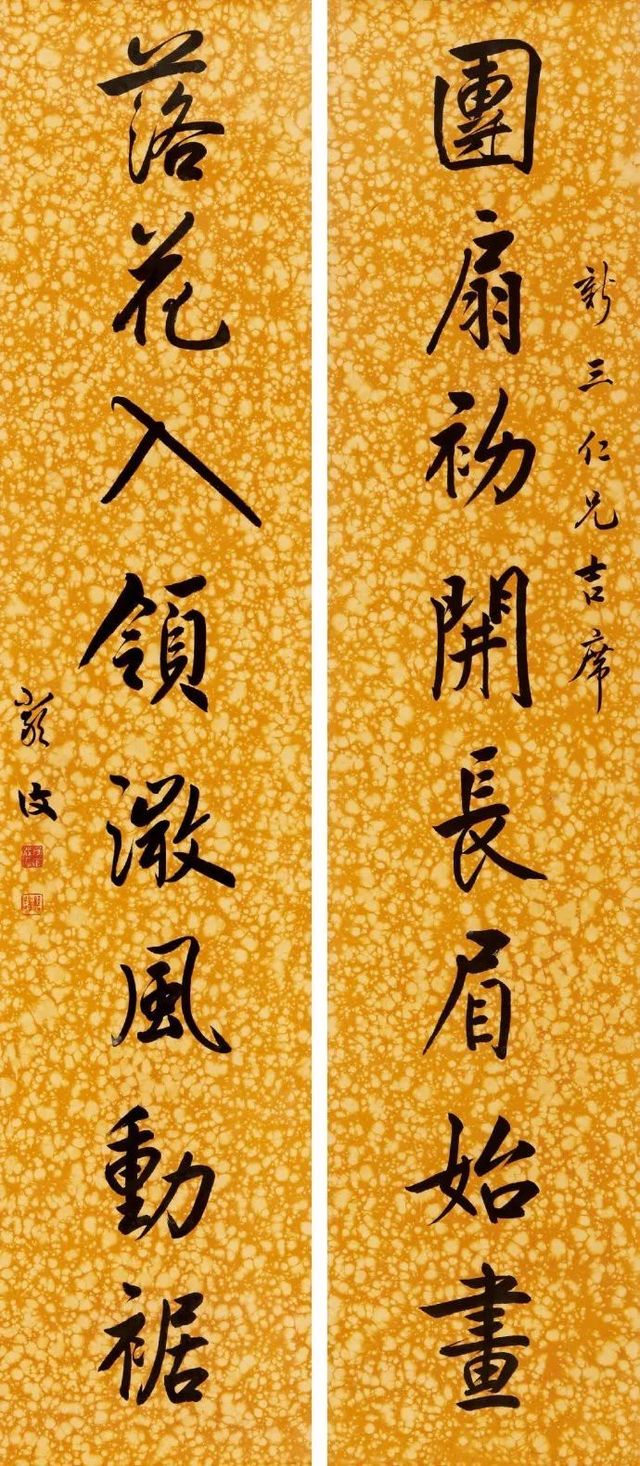 新三仁兄吉席
團扇初開長眉始畫
落花入領微風動裾